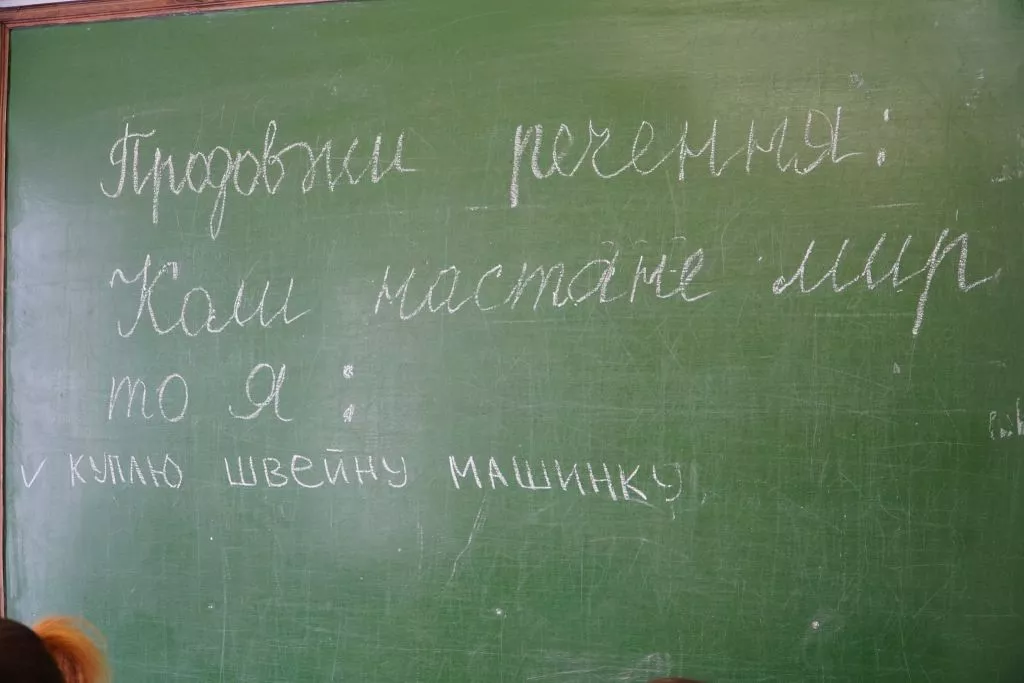 Продовжи речення:
Коли настане мир
то я :
v куплю швейну машинку